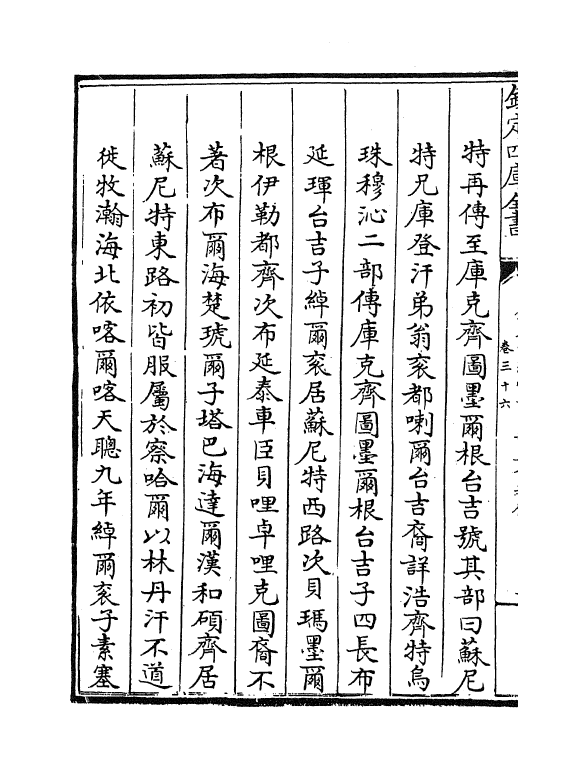 欽定四庫全書
卷三十六
特再傳至庫克齊圖墨爾根台吉號其部曰蘇尼
特兄庫登汗弟翁衮都喇爾台吉裔詳浩齊特烏
珠穆沁二部傳庫克齊圖墨爾根台吉子四長布
延琿台吉子綽爾衮居蘇尼特西路次貝瑪墨爾
根伊勒都齊次布延泰車臣貝哩卓哩克圖裔不
著次布爾海楚琥爾子塔巴海達爾漢和碩齊居
蘇尼特東路初皆服屬於察哈爾以林丹汗不道
徙牧瀚海北依喀爾喀天聰九年綽爾衮子素塞